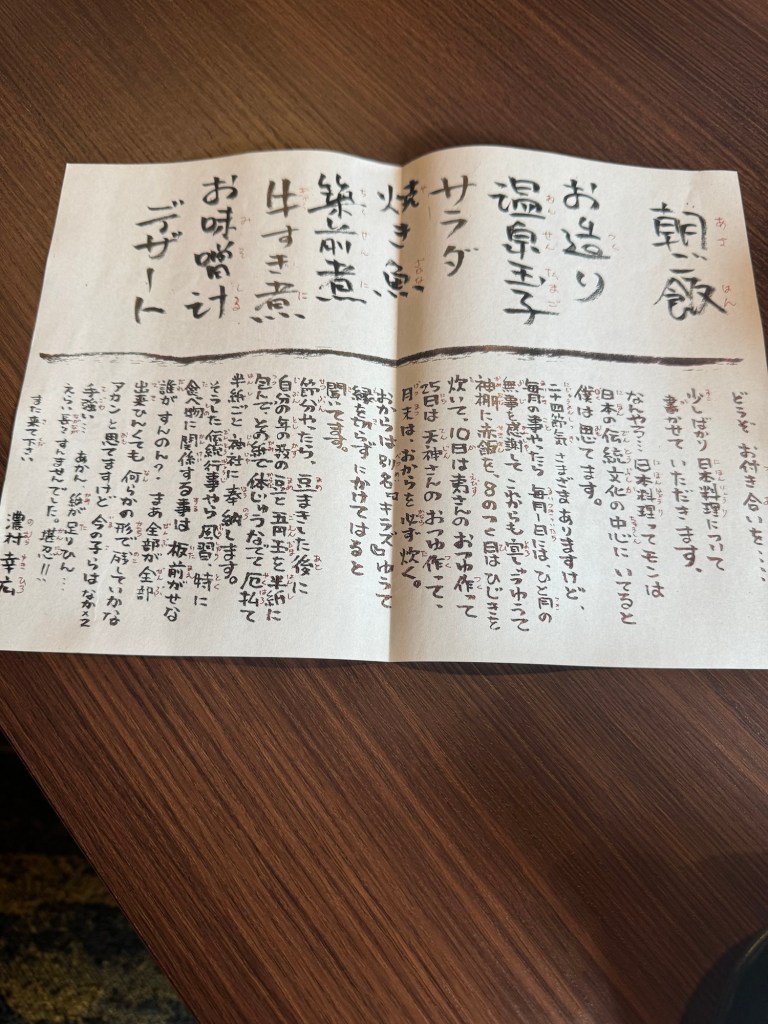 朝飯
お造り
温泉玉子
サラダ
焼き魚
筑前煮
牛すき煮
お味噌汁
デザート
どうぞ お付き合いを…
少しばかり 日本料理について
書かせて いただきます。
なんやろ… 日本料理ってモンは
日本の伝統文化の中心に いてると
僕は思てます。
二十四節気 さまざまありますけど、
毎月の事やたら 毎月1日には、ひと月の
無事を感謝して これからも宜しゅうゆうて
神棚に赤飯を、8のつく日はひじきを
炊いて、10日は夷さんのおつゆ作って
25日は 天神さんの おつゆ 作って、
月末は、おからを必ず炊く。
おからは別名『キラズ』ゆうて
縁を切らずにかけてはると
聞いてます。
節分やたら、豆まきした後に
自分の年の数の豆と五円玉を半紙に
包んで、その紙で体じゅうなでて 厄払て
半紙ごと 神社に奉納します。
そうした伝統行事やら 風習、特に
食べ物に関係する事は 板前がせな
誰がすんのん? まあ全部が全部
出来ひんくても 何らかの形で残していかな
アカンと思てますけど 今の子らはなかなか
手強い… あかん 紙が足りひん…
えらい長々すんませんでした。堪忍!!
また来て下さい
濃村幸宏